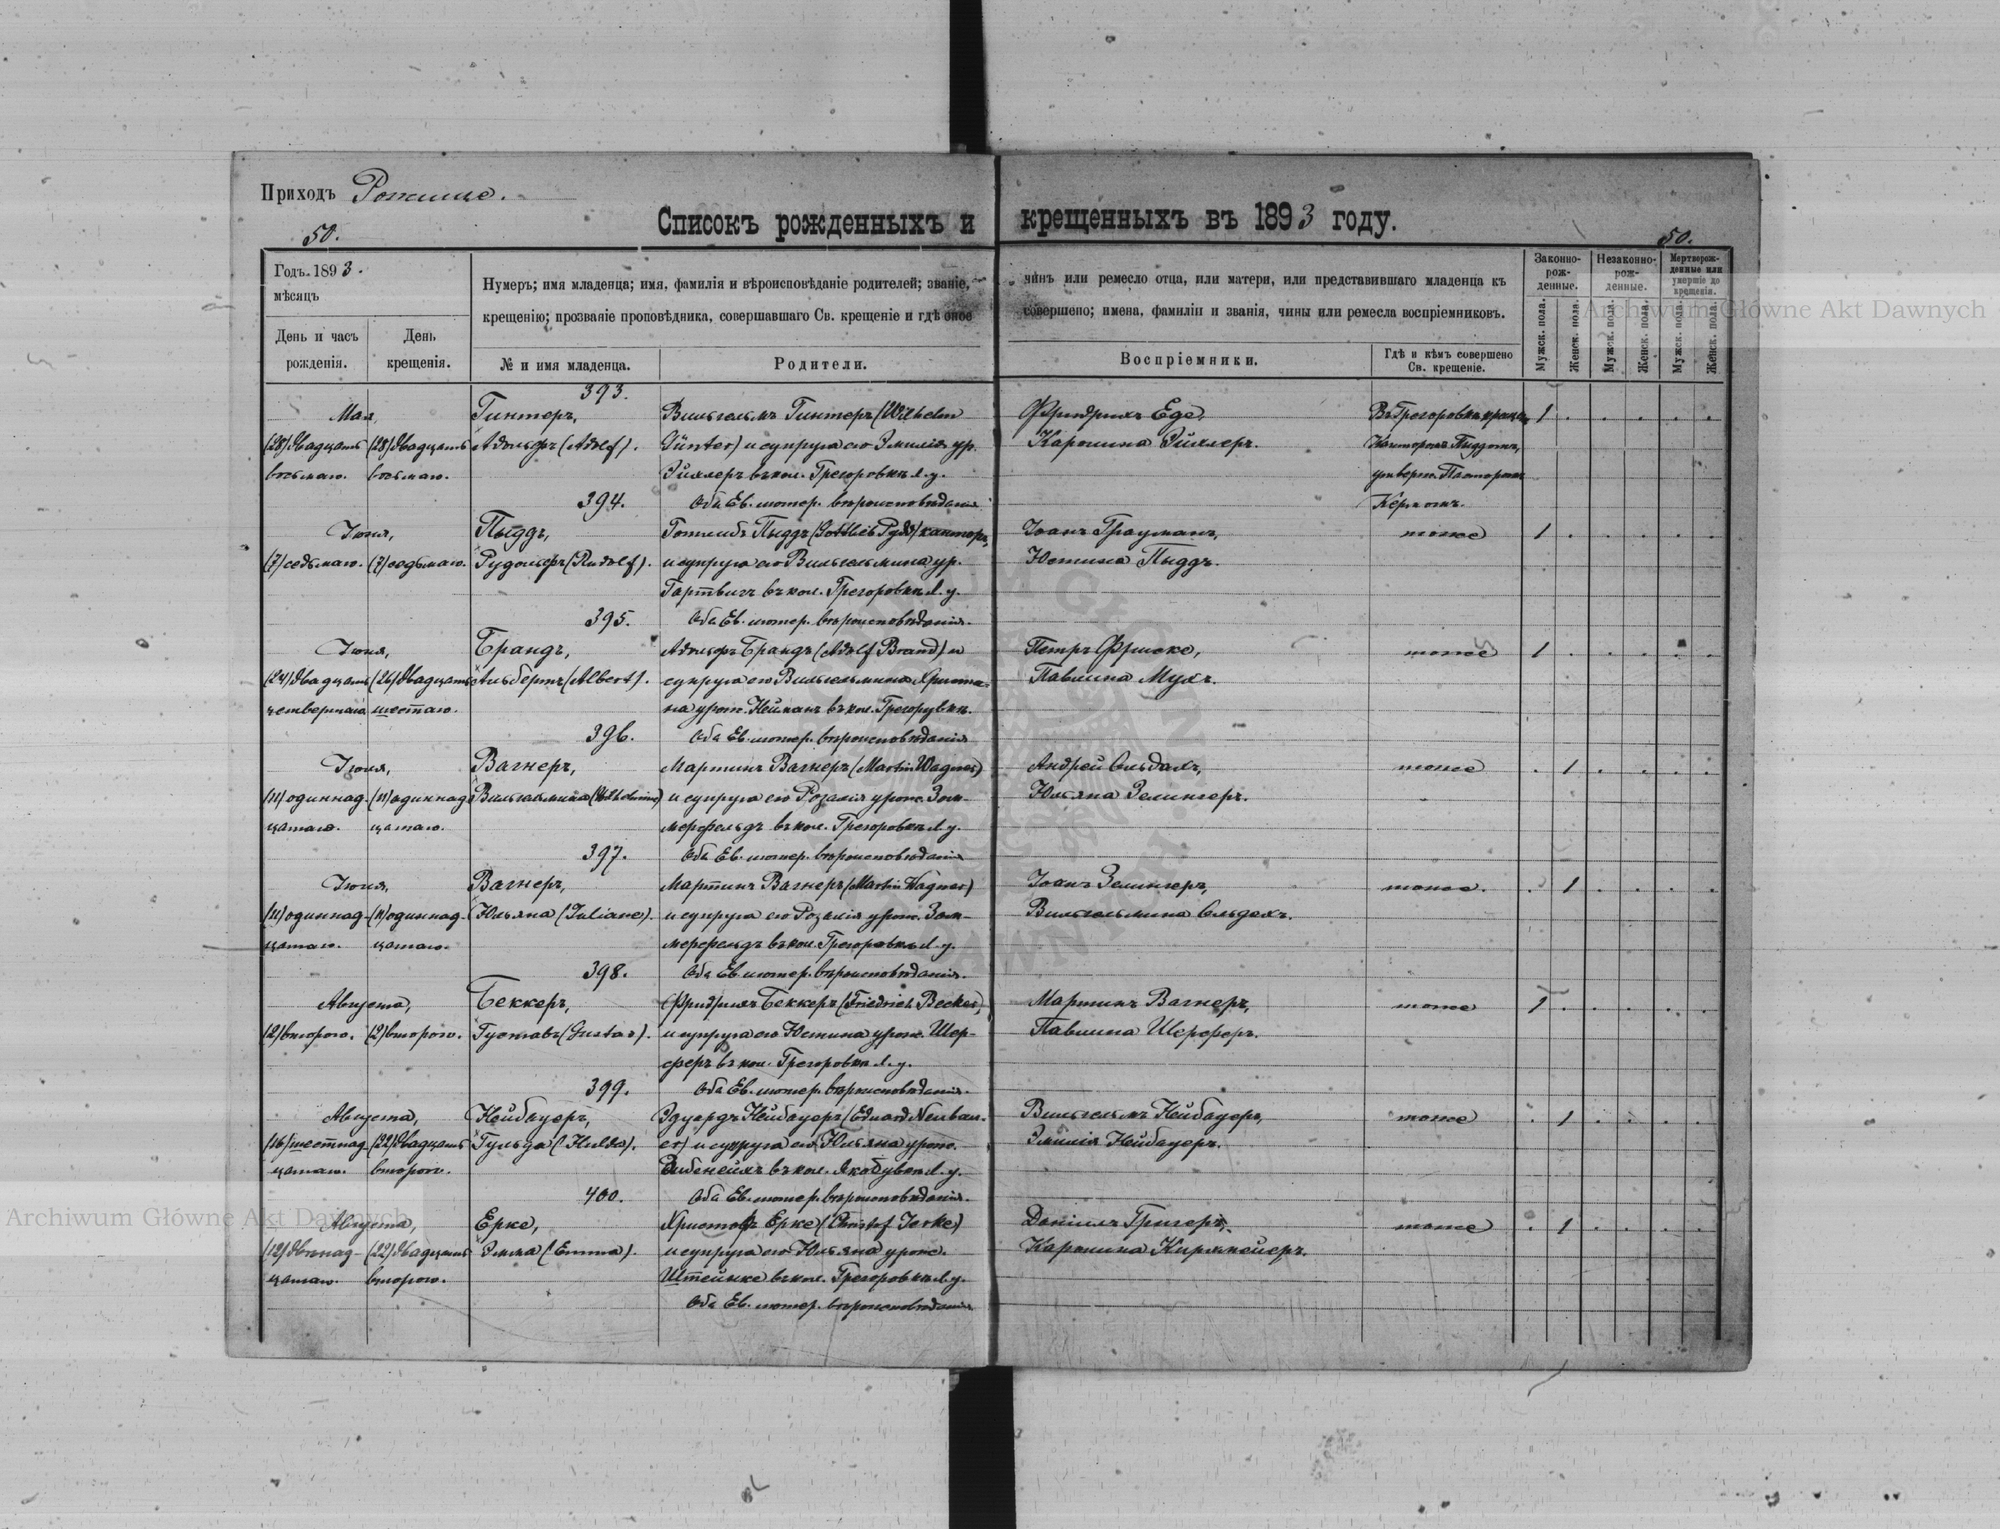 Приходъ Рожище.
50.
Списокъ рожденныхъ и крещенныхъ въ 1893 году.
50.
Годъ 1893.
мѣсяцъ
День и часъ рожденія.
День крещенія.
Нумеръ; имя младенца; имя, фамилія и вѣроисповѣданіе родителей; званіе, чинъ или ремесло отца, или матери, или представившаго младенца къ
крещенію; прозваніе проповѣдника, совершавшаго Св. крещеніе и гдѣ оное совершено; имена, фамиліи и званія, чины или ремесла воспріемниковъ.
№ и имя младенца.
Родители.
Воспріемники.
Гдѣ и кѣмъ совершено Св. крещеніе.
Законно-рож-денные.
Незаконно-рож-денные.
Мертворож-денные или умершіе до крещенія.
Мужск. пола.
Женск. пола.
Мужск. пола.
Женск. пола.
Мужск. пола.
Женск. пола.
393.
Мая,
(28) двадцать восьмаго.
(28) двадцать восьмаго.
Гинтеръ,
Адольфъ (Adolf).
Вильгельмъ Гинтеръ (Wilhelm
Günter) и супруга его Эмилія ур.
Эйхлеръ въ кол. Грегоровкѣ Л. у.
Оба Ев. лютер. вѣроисповѣданія
Фридрихъ Еде,
Каролина Эйхлеръ.
Въ Грегоровкѣ
Канторомъ Пыддомъ,
утвержд. Пасторомъ
Кернъ.
1
394.
Іюня,
(7) седьмаго.
(7) седьмаго.
Пыддъ,
Рудольфъ (Rudolf).
Готлибъ Пыддъ (Gottlieb Pydd) канторъ,
и супруга его Вильгельмина ур.
Гартвигъ въ кол. Грегоровкѣ Л. у.
Оба Ев. лютер. вѣроисповѣданія.
Іоанъ Грауманъ,
Юстина Пыддъ.
тоже
1
395.
Іюня,
(24) двадцать четвертаго
(26) двадцать шестаго.
Брандъ,
Альбертъ (Albert).
Адольфъ Брандъ (Adolf Brand) и
супруга его Вильгельмина Христіа-
на урож. Нейманъ въ кол. Грегорувкѣ.
Оба Ев. лютер. вѣроисповѣданія
Петръ Фриске,
Павлина Мухъ.
тоже
1
396.
Іюня,
(11) одиннад-цатаго.
(11) одиннад-цатаго.
Вагнеръ,
Вильгельмина (Wilhelmine)
Мартинъ Вагнеръ (Martin Wagner)
и супруга его Розалія урож. Зом-
мерфельдъ въ кол. Грегоровкѣ Л. у.
Оба Ев. лютер. вѣроисповѣданія
Андрей Ольдахъ,
Юльяна Зелингеръ.
тоже
1
397.
Іюня,
(11) одиннад-цатаго.
(11) одиннад-цатаго.
Вагнеръ,
Юльяна (Juliane).
Мартинъ Вагнеръ (Martin Wagner)
и супруга его Розалія урож. Зом-
мерфельдъ въ кол. Грегоровкѣ Л. у.
Оба Ев. лютер. вѣроисповѣданія.
Іоанъ Зелингеръ,
Вильгельмина Ольдахъ.
тоже.
1
398.
Августа,
(2) втораго.
(2) втораго.
Беккеръ,
Густавъ (Gustav).
Фридрихъ Беккеръ (Friedrich Becker)
и супруга его Юстина урож. Шер-
феръ въ кол. Грегоровкѣ Л. у.
Оба Ев. лютер. вѣроисповѣданія.
Мартинъ Вагнеръ,
Павлина Шерферъ.
тоже
1
399.
Августа,
(16) шестнад-цатаго.
(22) двадцать втораго.
Нейбауеръ,
Гульда (Hulda).
Эдуардъ Нейбауеръ (Eduard Neubau-
er) и супруга его Юльяна урож.
въ кол. Якобувкѣ Л. у.
Оба Ев. лютер. вѣроисповѣданія.
Вильгельмъ Нейбауеръ,
Эмилія Нейбауеръ.
тоже
1
400.
Августа,
(12) двѣнад-цатаго.
(22) двадцать втораго.
Ерке,
Эмма (Emma).
Христофъ Ерке (Christof Jerke)
и супруга его Юльяна урож.
Штейнке въ кол. Грегоровкѣ Л. у.
Оба Ев. лютер. вѣроисповѣданія.
Даніилъ Григеръ,
Каролина Кирхмейеръ.
тоже
1
Archiwum Główne Akt Dawnych
Archiwum Główne Akt Dawnych